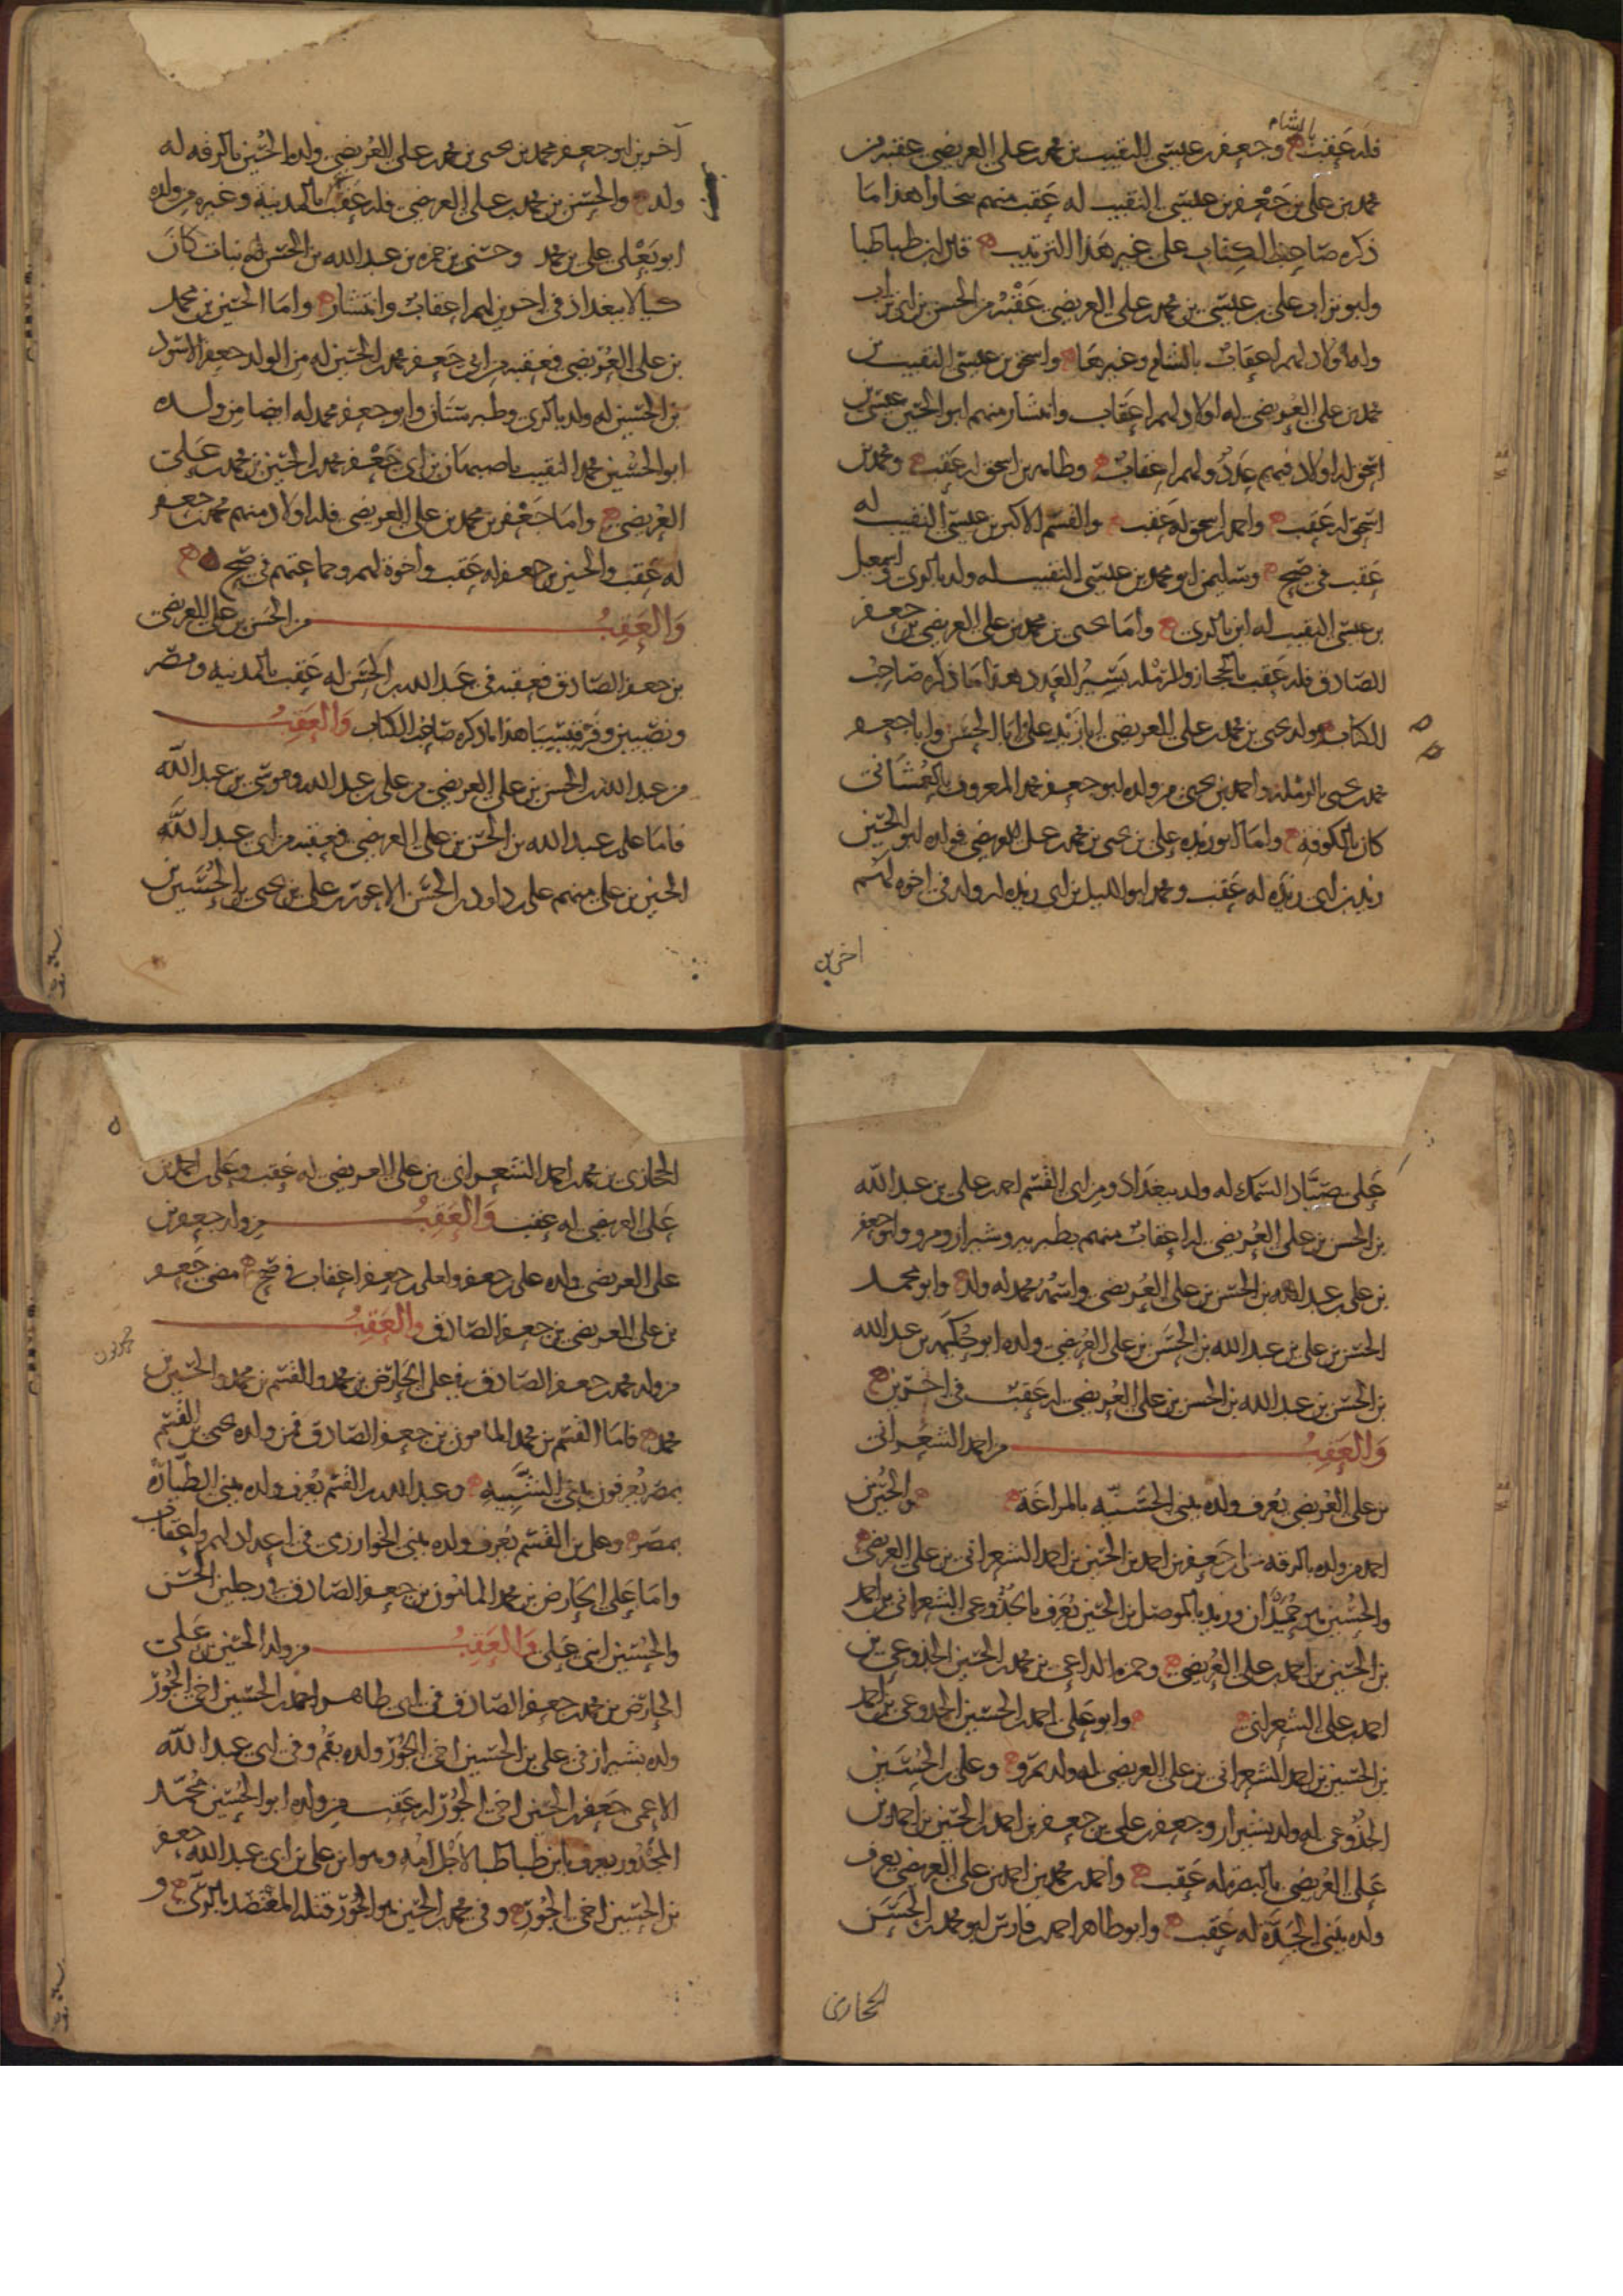 بالشام
فله عقب وجعفر بن عيسى النقيب بن محمد بن على العريضى عقبه من
محمد بن على بن جعفر بن عيسى النقيب له عقب منهم ببخارا هذا ما
ذكره صاحب الكتاب على غير هذا الترتيب قال ابن طباطبا
وابو تراب على بن عيسى بن محمد بن على العريضى عقبه من الحسن بن ابى تراب
وله اولاد لهم اعقاب بالشام وغيرها واسحق بن عيسى النقيب بن
محمد بن على العريضى له اولاد لهم اعقاب وانتشار منهم ابو الحسين عيسى بن
اسحق له اولاد فيهم عدد ولهم اعقاب وطاهر بن اسحق له عقب ومحمد بن
اسحق له عقب واحمد بن اسحق له عقب والقسم الاكبر بن عيسى النقيب له
عقب فى صح وسليمن ابو محمد بن عيسى النقيب له ولد بالرى واسمعيل
بن عيسى النقيب له ابن بالرى واما يحيى بن محمد بن على العريضى بن جعفر
الصادق فله عقب بالحجاز والرمله يسير العدد هذا ما ذكره صاحب
الكتاب ولد يحيى بن محمد بن على العريضى ابا زيد على وابا الحسن وابا جعفر
محمد بن يحيى بالرمله واحمد بن يحيى من ولده ابو جعفر محمد المعروف
كان بالكوفه واما ابو زيد على بن يحيى بن محمد بن على العريضى فولده ابو الحسين
زيد بن ابى زيد له عقب ومحمد ابو الليل بن ابى زيد له ولد فى اخوه لهم
اخرين
آخرين ابو جعفر محمد بن يحيى بن محمد بن على العريضى ولده الحسين بالرقه له
ولد والحسن بن محمد بن على العريضى فله عقب بالمدينة وغيره من ولده
ابو يعلى على بن محمد وحسنى بن حمزه بن عبد الله بن الحسن له بنات كان
كيالا ببغداد فى اخوين لهم اعقاب وانتشار واما الحسين بن محمد
بن على العريضى فعقبه من ابى جعفر محمد بن الحسين له من الولد جعفر الاسود
بن الحسين له ولد بالرى وطبرستان وابو جعفر محمد له ايضا من ولده
ابو الحسين محمد النقيب باصبهان بن ابى جعفر محمد بن الحسين بن محمد بن على
العريضى واما جعفر بن محمد بن على العريضى فله اولاد منهم محمد بن جعفر
له عقب والحسين بن جعفر له عقب واخوة لهم وجماعتهم فى صح
والعقب من الحسن بن على العريضى
بن جعفر الصادق فعقبه فى عبد الله بن الحسن له عقب بالمدينه ومصر
ونصيبين هذا ما ذكره صاحب الكتاب والعقب
من عبد الله بن الحسن بن على العريضى من على بن عبد الله وموسى بن عبد الله
فاما على بن عبد الله بن الحسن بن على العريضى فعقبه من ابى عبد الله
الحسين بن على منهم على بن داود بن الحسن الاعور بن على بن يحيى بن الحسين بن
على صياد السمك له ولد ببغداد ومن ابى القسم احمد بن على بن عبد الله
بن الحسن بن على العريضى له اعقاب منهم بطبريه وشيراز ومرو وابو جعفر
بن على بن عبد الله بن الحسن بن على العريضى واسمه محمد له ولد وابو محمد
الحسن بن على بن عبد الله بن الحسن بن على العريضى ولده ابو حكمه بن عبد الله
بن الحسن بن عبد الله بن الحسن بن على العريضى له عقب فى اخرين
والعقب من احمد الشعرانى
بن على العريضى يعرف ولده ببنى الحسنيه بالمراغة والحسين بن
احمد من ولده بالرقه بن جعفر بن احمد بن الحسين بن احمد الشعرانى بن على العريضى
والحسين بن حميدان وزيد بالموصل بن الحسين يعرف بالجذوعى الشعرانى بن احمد
بن الحسين بن احمد بن على العريضى وحمزه الداعى بن محمد بن الحسين الجذوعى بن
احمد بن على الشعرانى وابو على احمد بن الحسين الجذوعى بن احمد
بن الحسين بن احمد الشعرانى بن على العريضى له ولد بمرو وعلى بن الحسين
الجذوعى له ولد بشيراز وجعفر بن على بن جعفر بن احمد بن الحسين بن احمد بن
على العريضى بالبصره له عقب واحمد بن محمد بن احمد بن على العريضى يعرف
ولده ببنى الجدة له عقب وابو طاهر احمد بن فارس ابو محمد بن الحسن
الحجازى
الحجازى بن محمد بن احمد الشعرانى بن على العريضى له عقب وعلى بن احمد بن
على العريضى له عقب والعقب من ولد جعفر بن
على العريضى ولده على بن جعفر ولعلى بن جعفر اعقاب فى صح مضى جعفر
بن على العريضى بن جعفر الصادق والعقب
من ولد محمد بن جعفر الصادق فى على الحارض بن محمد والقسم بن محمد والحسين بن
محمد فاما القسم بن محمد المامون بن جعفر الصادق فمن ولده يحيى بن القسم
بمصر يعرفون ببنى الشبيه وعبد الله بن القسم يعرف ولده ببنى الطيارة
بمصر وعلى بن القسم يعرف ولده ببنى الخوارزمى فى اعداد لهم واعقاب
واما على الحارض بن محمد المامون بن جعفر الصادق فى رجلين الحسن
والحسين ابنى على والعقب من ولد الحسين بن على
الحارض بن محمد بن جعفر الصادق فى ابى طاهر احمد بن الحسين اخى الجوز
ولده بشيراز فى على بن الحسين اخى الجوز ولده بقم وفى ابى عبد الله
الاعمى جعفر بن الحسين اخى الجوز له عقب من ولده ابو الحسين محمد
المجدور يعرف بابن طباطبا لاجل امه وهو ابن على بن ابى عبد الله جعفر
بن الحسين اخى الجوز وفى محمد بن الحسين هو الجوز قتله المعتضد بالرى و